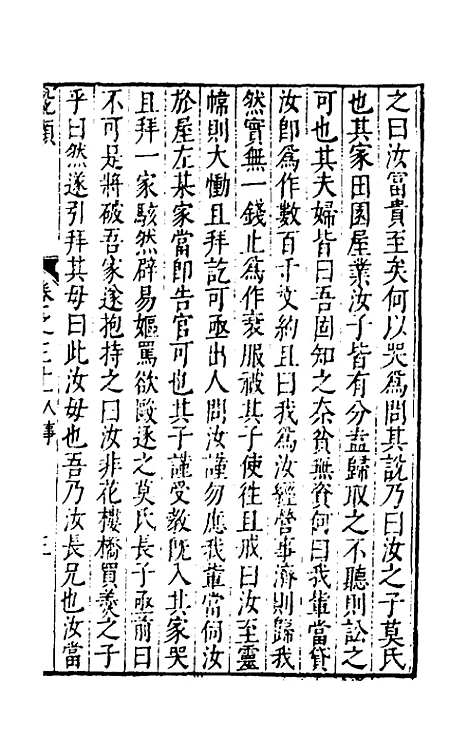 之曰汝富貴至矣何以哭爲問其說乃曰汝之子莫氏
也其家田園屋業汝子皆有分盍歸取之不聽則訟之
可也其夫婦皆曰吾固知之奈貧無資何曰我輩當貸
汝即爲作數百千文約且曰我爲汝經營事濟則歸我
然實無一錢止爲作衰服被其子使往且戒曰汝至靈
幃則大慟且拜訖可亟出人問汝謹勿應我輩當伺汝
於屋左某家當即告官可也其子謹受教旣入其家哭
且拜一家駭然辟易嫗罵欲毆逐之莫氏長子亟前曰
不可是將破吾家遂抱持之曰汝非花樓橋買羮之子
乎曰然遂引拜其母曰此汝母也吾乃汝長兄也汝當
說頤
卷之三十 人事
三